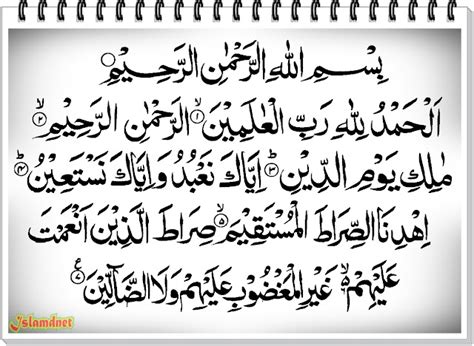 بِسْمِ اللهِ الرَّحْمٰنِ الرَّحِيْمِ
اَلْحَمْدُ لِلّٰهِ رَبِّ الْعٰلَمِيْنَ ۙ﴿١﴾ الرَّحْمٰنِ الرَّحِيْمِ ۙ﴿٢﴾
مٰلِكِ يَوْمِ الدِّيْنِ ؕ﴿٣﴾ اِيَّاكَ نَعْبُدُ وَاِيَّاكَ نَسْتَعِيْنُ ؕ﴿٤﴾
اِهْدِنَا الصِّرَاطَ الْمُسْتَقِيْمَ ۙ﴿٥﴾ صِرَاطَ الَّذِيْنَ اَنْعَمْتَ
عَلَيْهِمْ ۙ۬ غَيْرِ الْمَغْضُوْبِ عَلَيْهِمْ وَلَا الضَّآلِّيْنَ ﴿٧﴾
Islamdnet